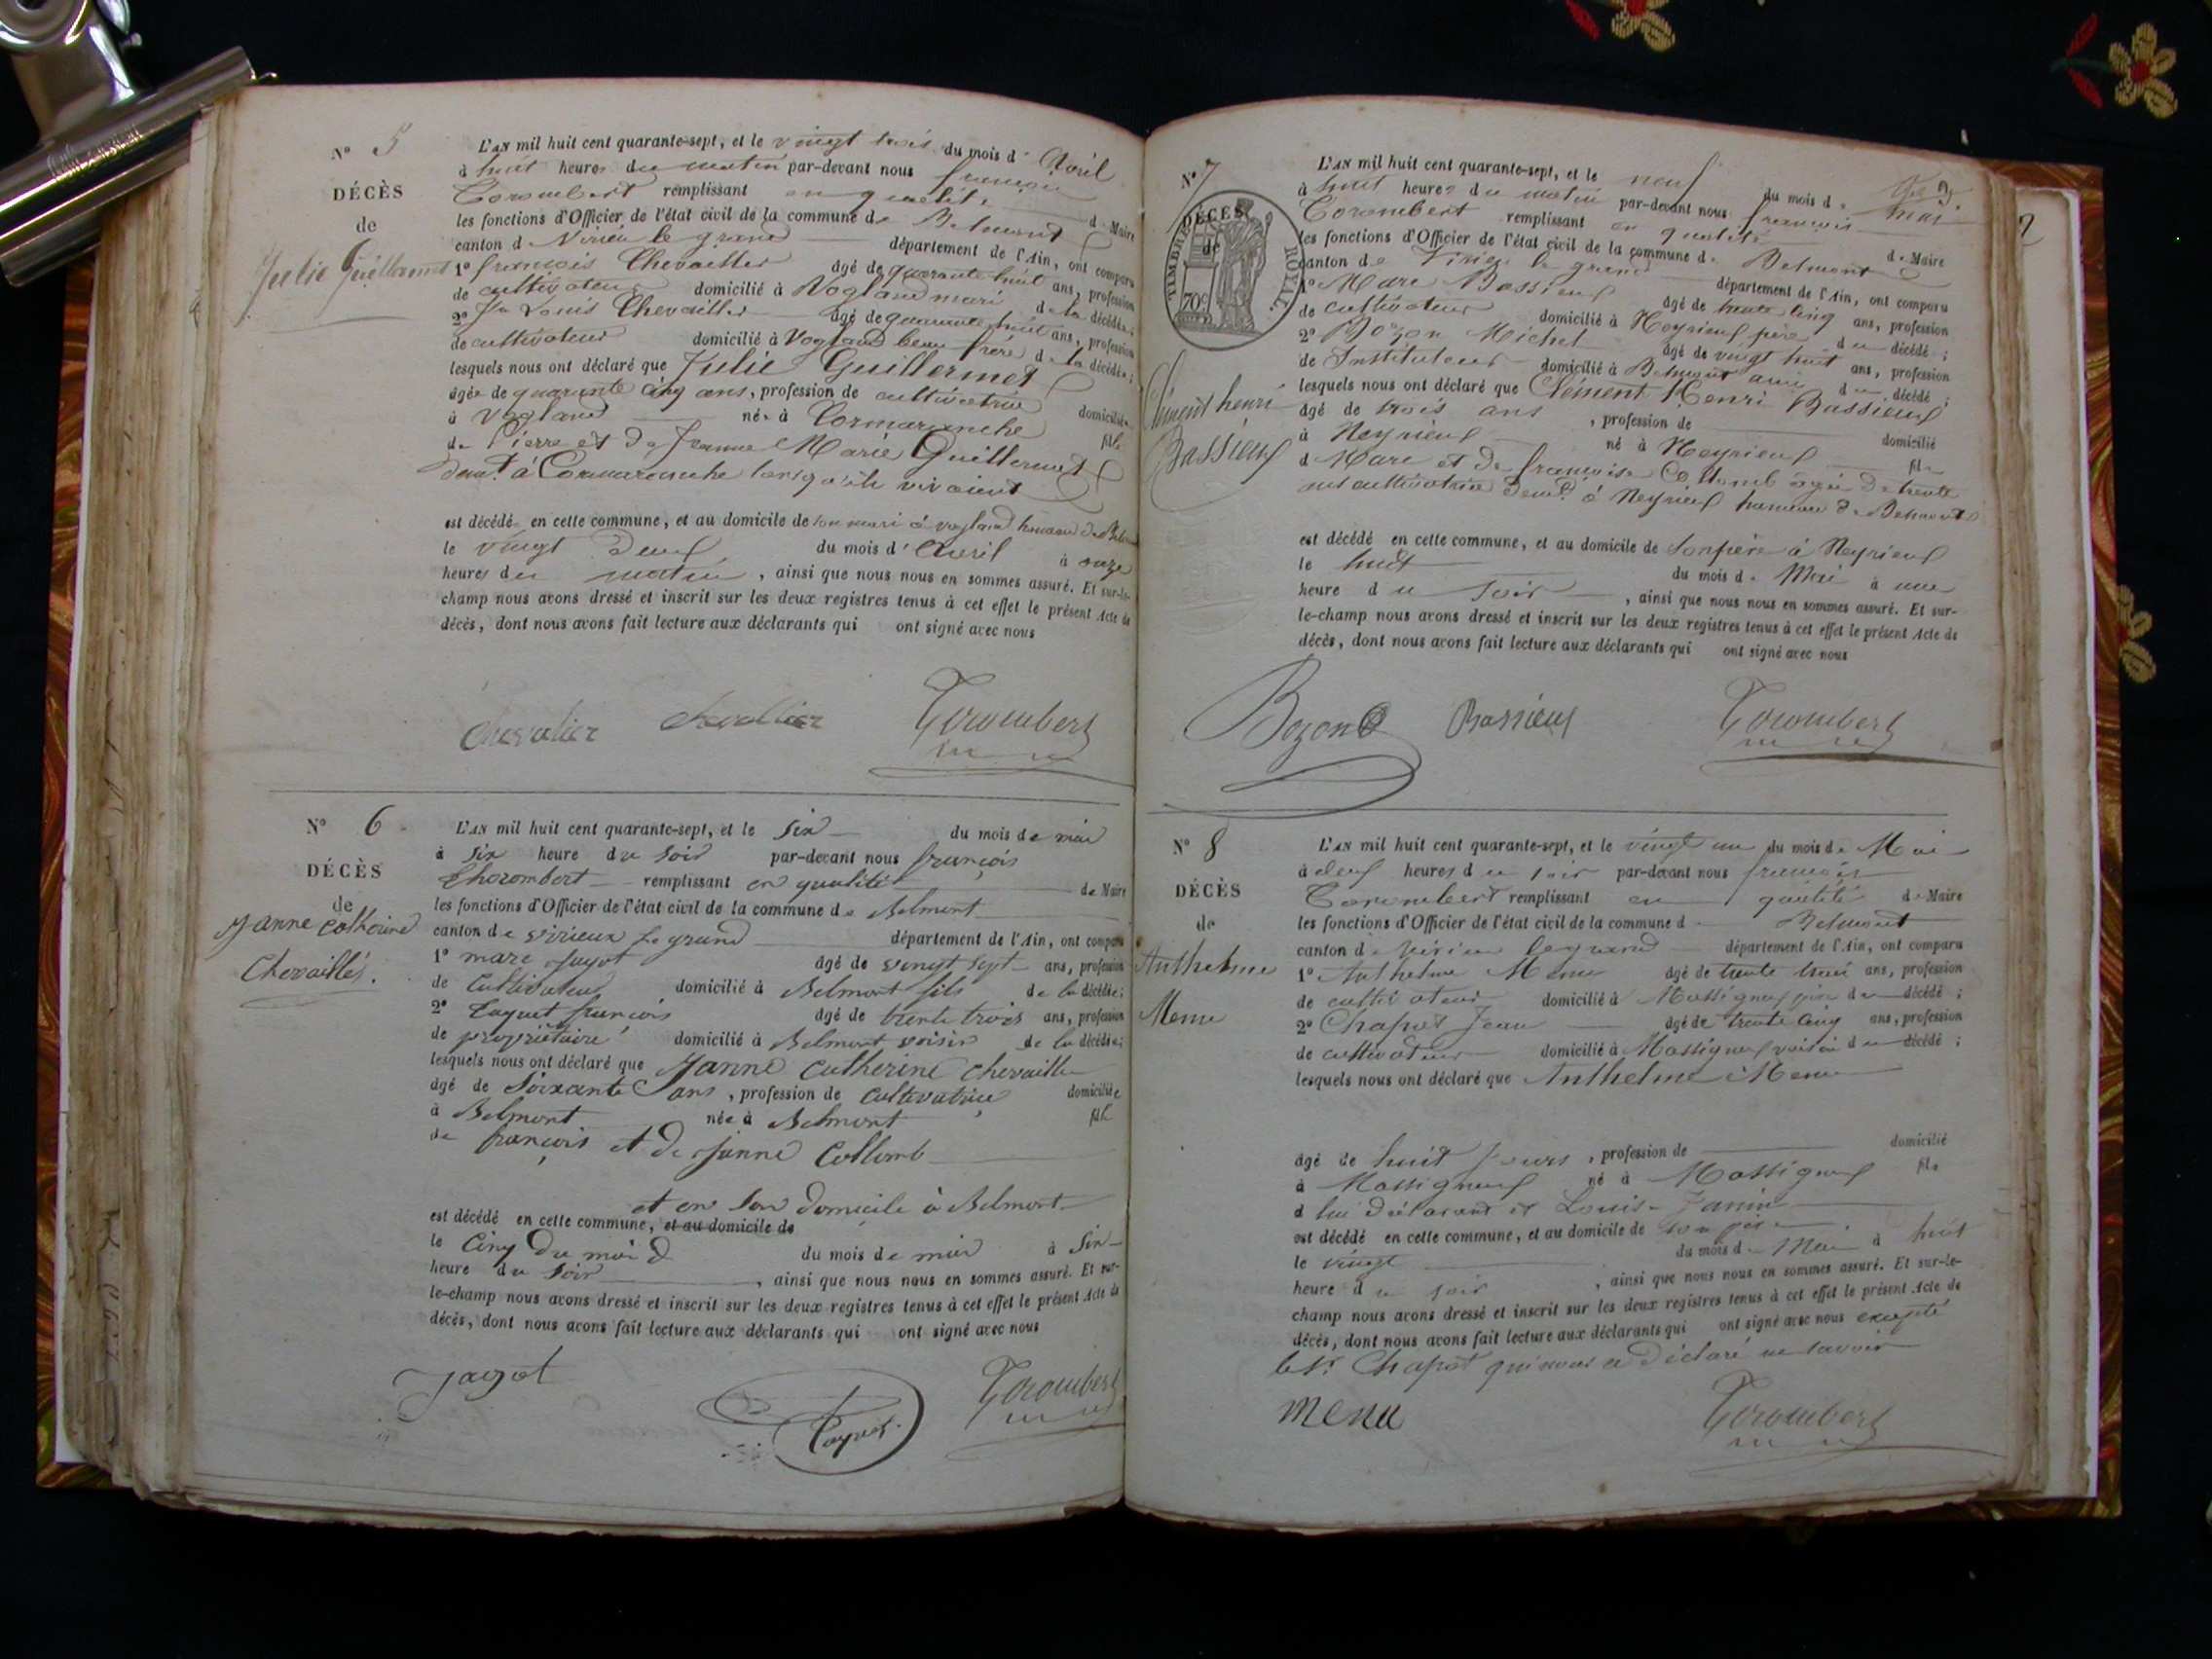 N° 5
DÉCÈS
de
Julie Guillermet
L'AN mil huit cent quarante-sept, et le vingt trois du mois d'Avril
à huit heures du matin par-devant nous françois
Corombert remplissant en qualité de Maire
les fonctions d'Officier de l'état civil de la commune de Belmont
canton de Virieu le grand département de l'Ain, ont comparu
1° françois Chevailler âgé de quarante huit ans, profession
de cultivateur domicilié à Vogland mari de la décédée;
2° Jn Louis Chevailler âgé de quarante huit ans, profession
de cultivateur domicilié à Vogland beau frère de la décédée;
lesquels nous ont déclaré que Julie Guillermet
âgée de quarante cinq ans, profession de cultivatrice domiciliée
à Vogland née à Cormaranche fille
de Pierre et de Jeanne Marie Guillermet
demt à Cormaranche lorsqu'ils vivaient
est décédée en cette commune, et au domicile de son mari à vogland hameau de Belmont
le vingt deux du mois d'Avril à onze
heures du matin, ainsi que nous nous en sommes assuré. Et sur-le-
champ nous avons dressé et inscrit sur les deux registres tenus à cet effet le présent Acte de
décès, dont nous avons fait lecture aux déclarants qui ont signé avec nous
chevalier chevallier Corombert
N° 6
DÉCÈS
de
Janne Catherine
Chevaillér.
L'AN mil huit cent quarante-sept, et le six du mois de mai
à six heure du soir par-devant nous françois
Chorombert remplissant en qualité de Maire
les fonctions d'Officier de l'état civil de la commune de Belmont
canton de virieux le grand département de l'Ain, ont comparu
1° marc Jagot âgé de vingt sept ans, profession
de Cultivateur domicilié à Belmont fils de la décédée;
2° françois âgé de trente trois ans, profession
de propriétaire domicilié à Belmont voisin de la décédée;
lesquels nous ont déclaré que Janne Catherine Chevailler
âgé de Soixante ans, profession de cultivatrice domiciliée
à Belmont née à Belmont fille
de françois et de Janne Collomb
et en son domicile à Belmont
est décédé en cette commune, et au domicile de
le Cinq du mois d du mois de mai à Six
heure du soir, ainsi que nous nous en sommes assuré. Et sur-
le-champ nous avons dressé et inscrit sur les deux registres tenus à cet effet le présent Acte de
décès, dont nous avons fait lecture aux déclarants qui ont signé avec nous
Jagot Corombert
N° 7
DÉCÈS
de
TIMBRE ROYAL.
70c
Clément henri
Bassieux
L'AN mil huit cent quarante-sept, et le neuf du mois de mai
à huit heures du matin par-devant nous françois
Corombert remplissant en qualité de Maire
les fonctions d'Officier de l'état civil de la commune de Belmont
canton de Virieu le grand département de l'Ain, ont comparu
1° Marc Bassieux âgé de trente cinq ans, profession
de cultivateur domicilié à Neyrieux père du décédé;
2° Bozon Michel âgé de vingt huit ans, profession
de Instituteur domicilié à Belmont ami du décédé;
lesquels nous ont déclaré que Clément Henri Bassieux
âgé de trois ans, profession de domicilié
à Neyrieux né à Neyrieux fils
d Marc et de françoise Collomb agée de trente
cultivatrice demt à Neyrieux hameau de Belmont
est décédé en cette commune, et au domicile de son père à Neyrieux
le huit du mois de Mai à une
heure du soir, ainsi que nous nous en sommes assuré. Et sur-
le-champ nous avons dressé et inscrit sur les deux registres tenus à cet effet le présent Acte de
décès, dont nous avons fait lecture aux déclarants qui ont signé avec nous
Bozon Bassieux Corombert
N° 8
DÉCÈS
de
Anthelme
Menu
L'AN mil huit cent quarante-sept, et le vingt un du mois de Mai
à deux heures du soir par-devant nous françois
Corombert remplissant en qualité de Maire
les fonctions d'Officier de l'état civil de la commune d Belmont
canton de Virieu le grand département de l'Ain, ont comparu
1° Anthelme Menu âgé de trente trois ans, profession
de cultivateur domicilié à Massignieux père du décédé;
2° Chapot Jean âgé de trente cinq ans, profession
de cultivateur domicilié à Massignieux voisin du décédé;
lesquels nous ont déclaré que Anthelme Menu
âgé de huit jours, profession de domicilié
à Massignieux né à Massignieux fils
d lui déclarant et Louise Janin
est décédé en cette commune, et au domicile de son père
le vingt du mois de Mai à huit
heure du soir, ainsi que nous nous en sommes assuré. Et sur-le-
champ nous avons dressé et inscrit sur les deux registres tenus à cet effet le présent Acte de
décès, dont nous avons fait lecture aux déclarants qui ont signé avec nous excepté
le Sr Chapot qui nous a déclaré ne savoir
menu Corombert